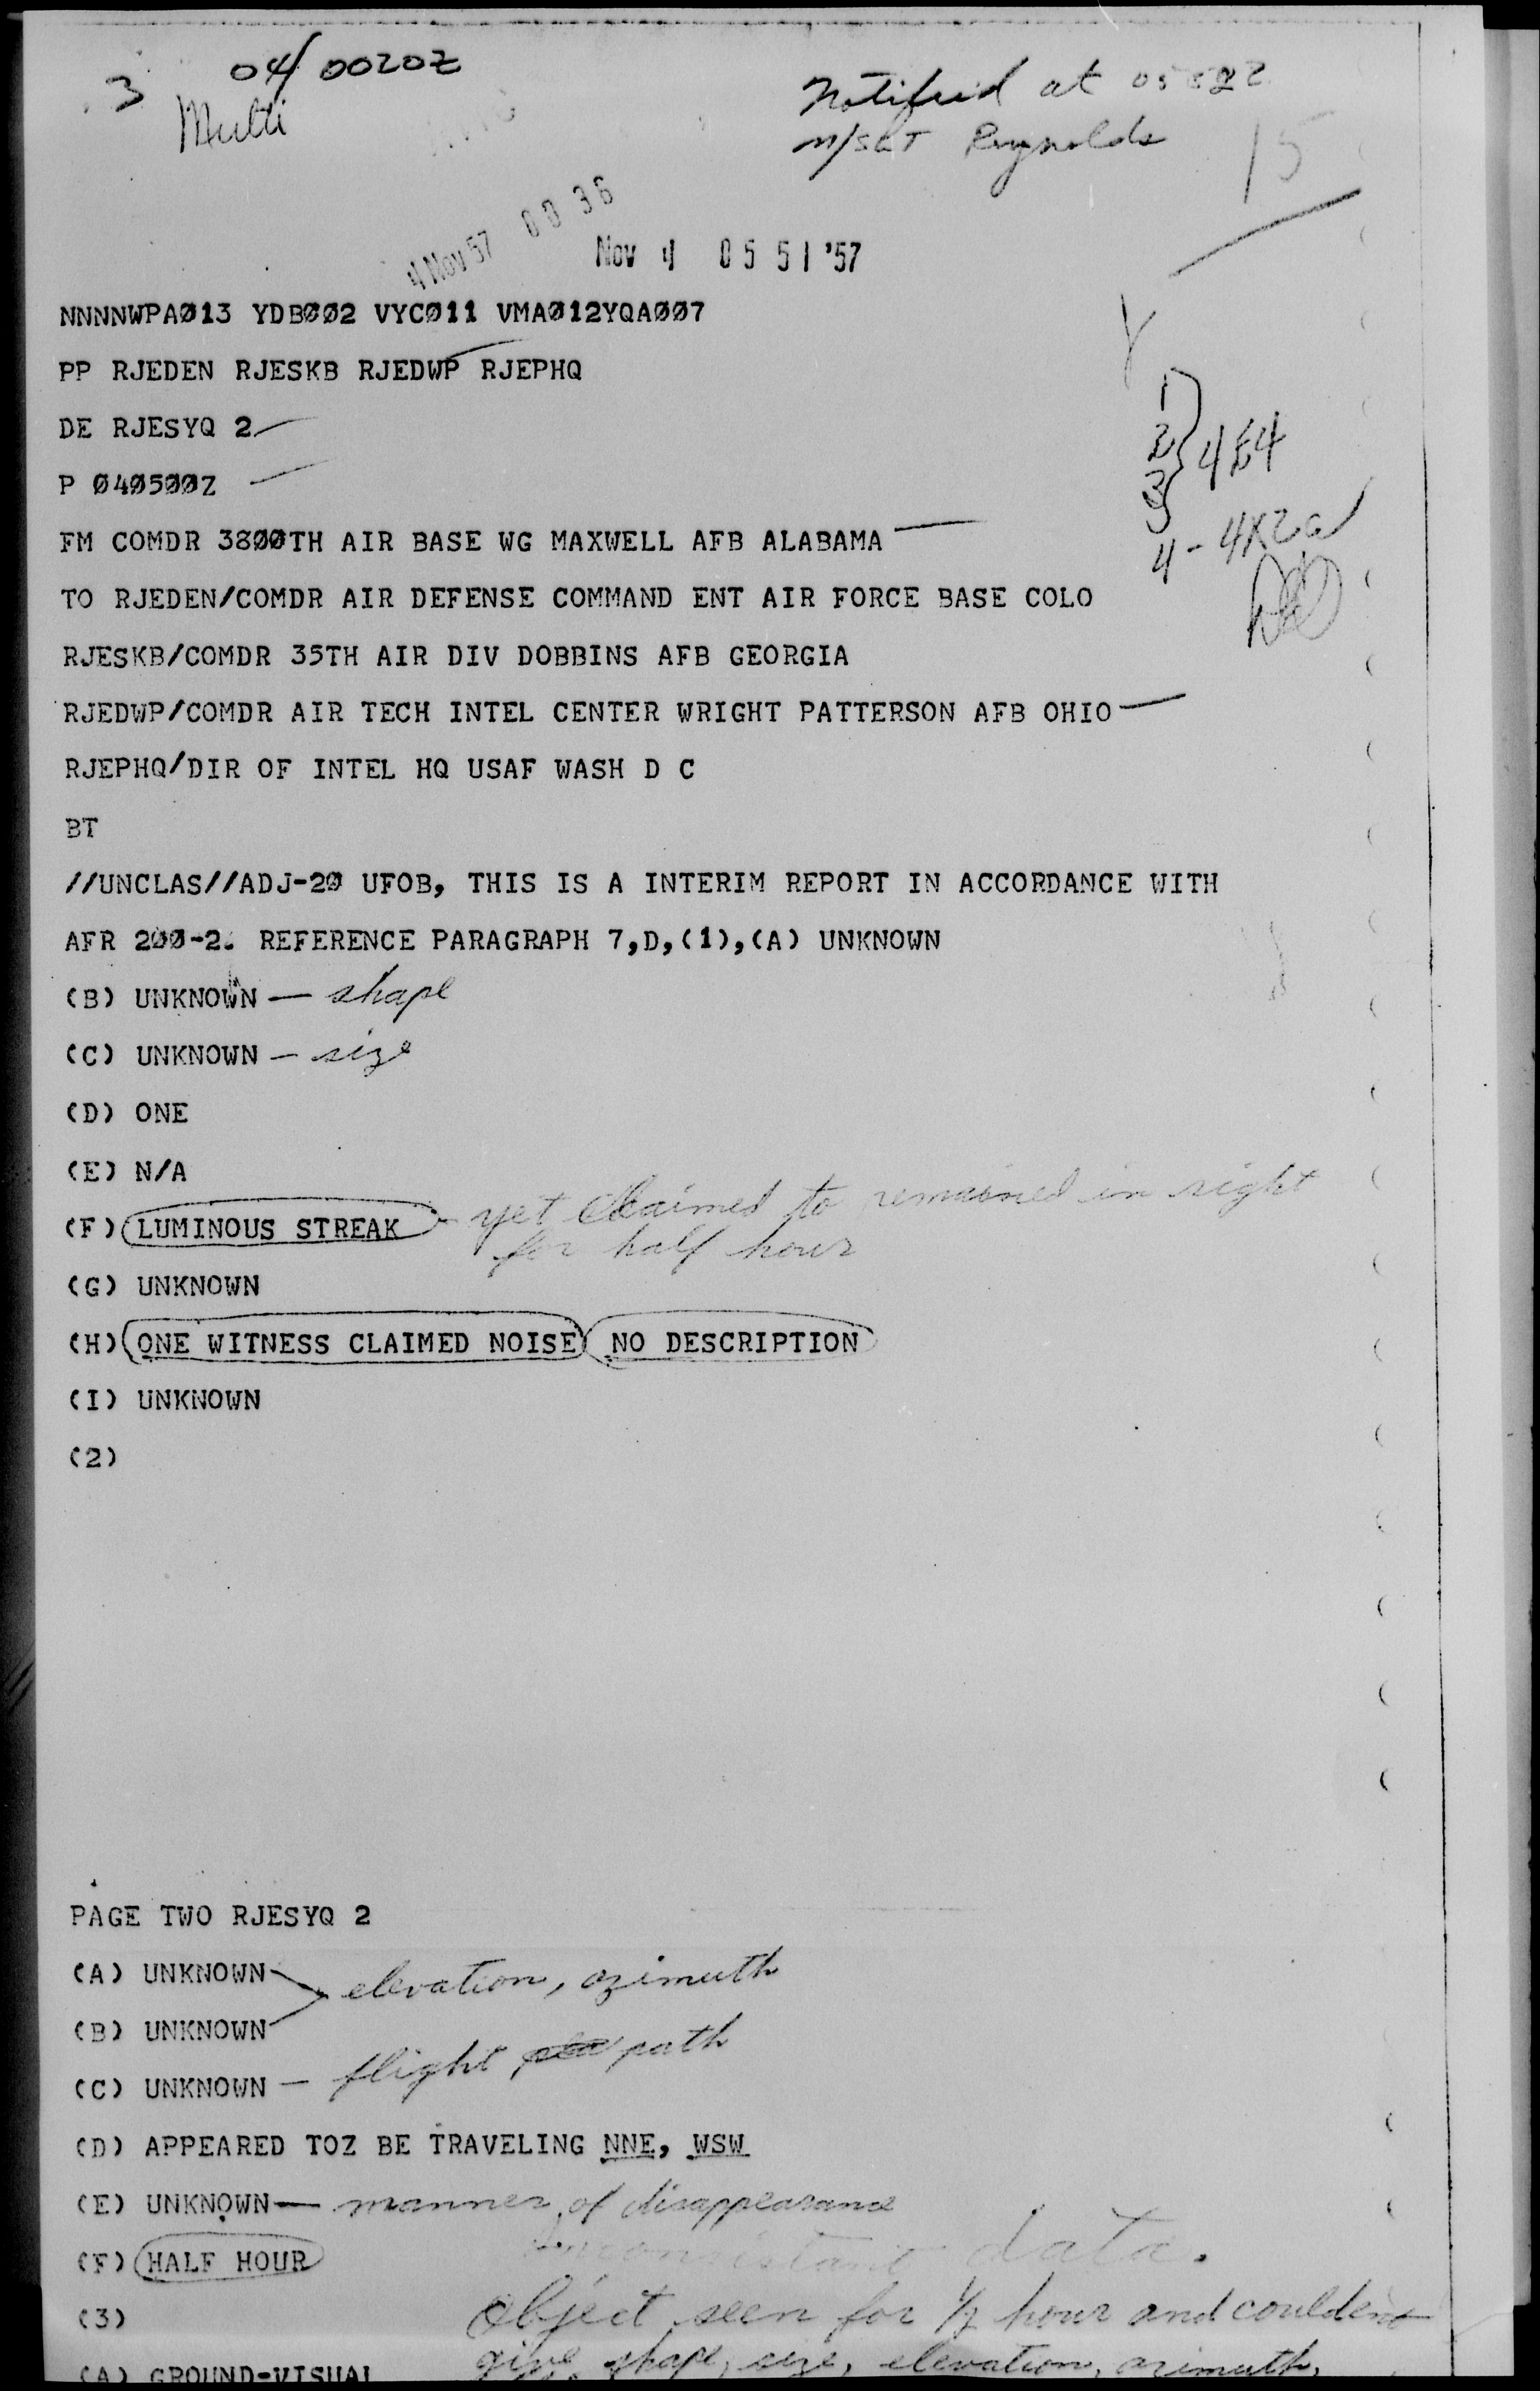 3 04/0020Z
Multi
Notified at
M/SGT Reynolds
15
4 Nov 57 00 36
Nov 4 05 51 '57
NNNNWPAØ13 YDBØØ2 VYCØ11 VMAØ12YQAØØ7
PP RJEDEN RJESKB RJEDWP RJEPHQ
DE RJESYQ 2
P Ø4Ø5ØØZ
1
2 } 4E4
3
4 - 4X2a
FM COMDR 38ØØTH AIR BASE WG MAXWELL AFB ALABAMA
TO RJEDEN/COMDR AIR DEFENSE COMMAND ENT AIR FORCE BASE COLO
RJESKB/COMDR 35TH AIR DIV DOBBINS AFB GEORGIA
RJEDWP/COMDR AIR TECH INTEL CENTER WRIGHT PATTERSON AFB OHIO
RJEPHQ/DIR OF INTEL HQ USAF WASH D C
BT
//UNCLAS//ADJ-2Ø UFOB, THIS IS A INTERIM REPORT IN ACCORDANCE WITH
AFR 2ØØ-2. REFERENCE PARAGRAPH 7,D,(1),(A) UNKNOWN
(B) UNKNOWN — shape
(C) UNKNOWN — size
(D) ONE
(E) N/A
(F) LUMINOUS STREAK - yet claimed to remained in sight
for half hour
(G) UNKNOWN
(H) ONE WITNESS CLAIMED NOISE NO DESCRIPTION
(I) UNKNOWN
(2)
PAGE TWO RJESYQ 2
(A) UNKNOWN
elevation, azimuth
(B) UNKNOWN
(C) UNKNOWN — flight path
(D) APPEARED TOZ BE TRAVELING NNE, WSW
(E) UNKNOWN — manner of disappearance
Inconsistant data.
(F) HALF HOUR
(3) Object seen for 1/2 hour and couldent
(A) GROUND-VISUAL give shape, size, elevation, azimuth,